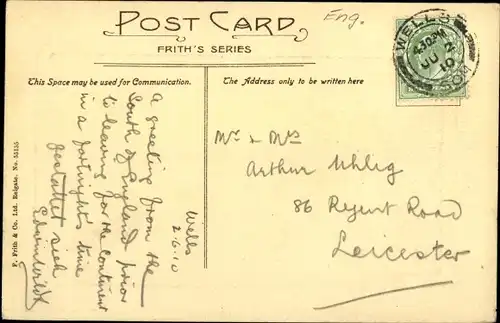 POST CARD
FRITH'S SERIES
Eng.
This Space may be used for Communication.
The Address only to be written here
WELLS
4.30PM
JU 2
10
SOM
Wells
2.6.10
A greeting from the
South of England prior
to leaving for the continent
in a fortnight's time
gestattet sich
Mr & Mrs
Arthur Uhlig
86 Regent Road
Leicester
F. Frith & Co. Ltd. Reigate. No. 55155